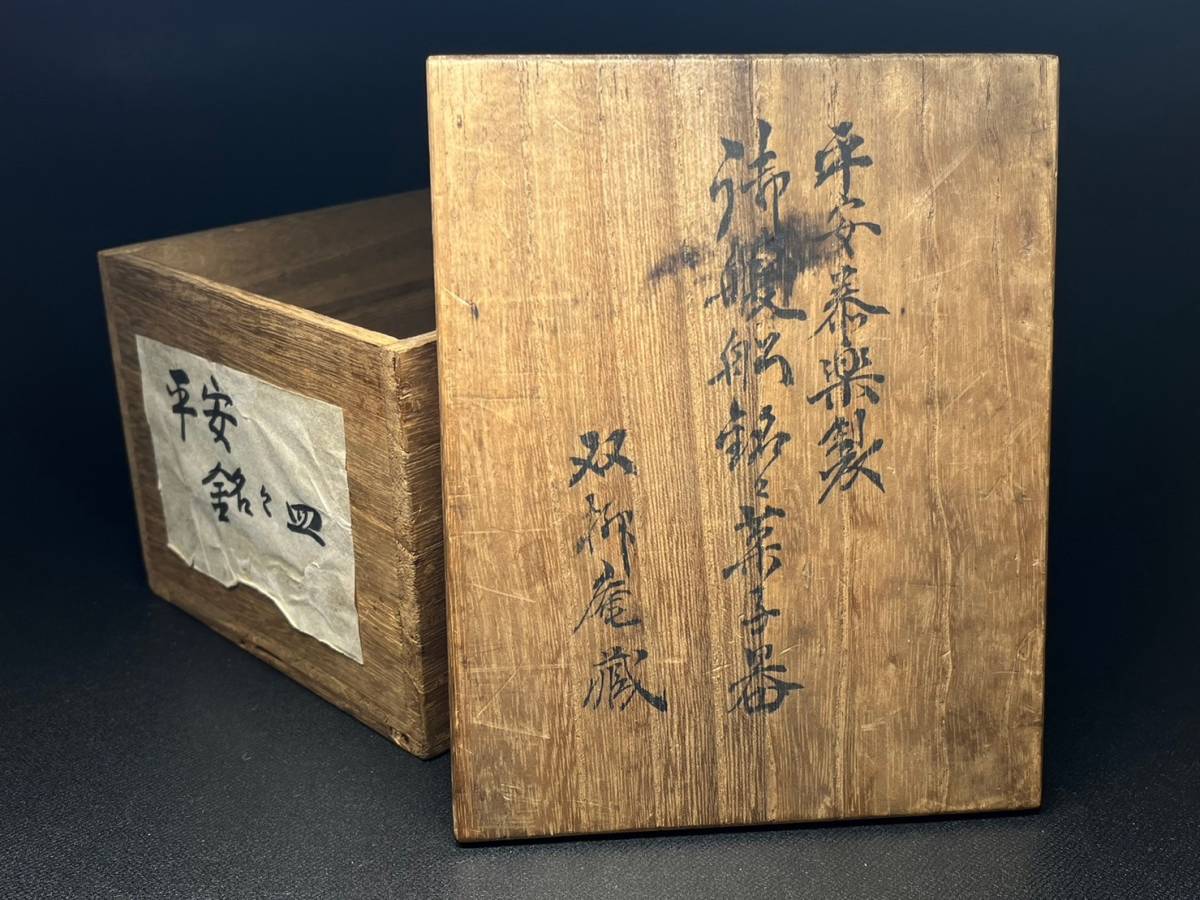 平安慕楽製
御船銘々菓子器
双柳庵蔵
平安
銘々皿